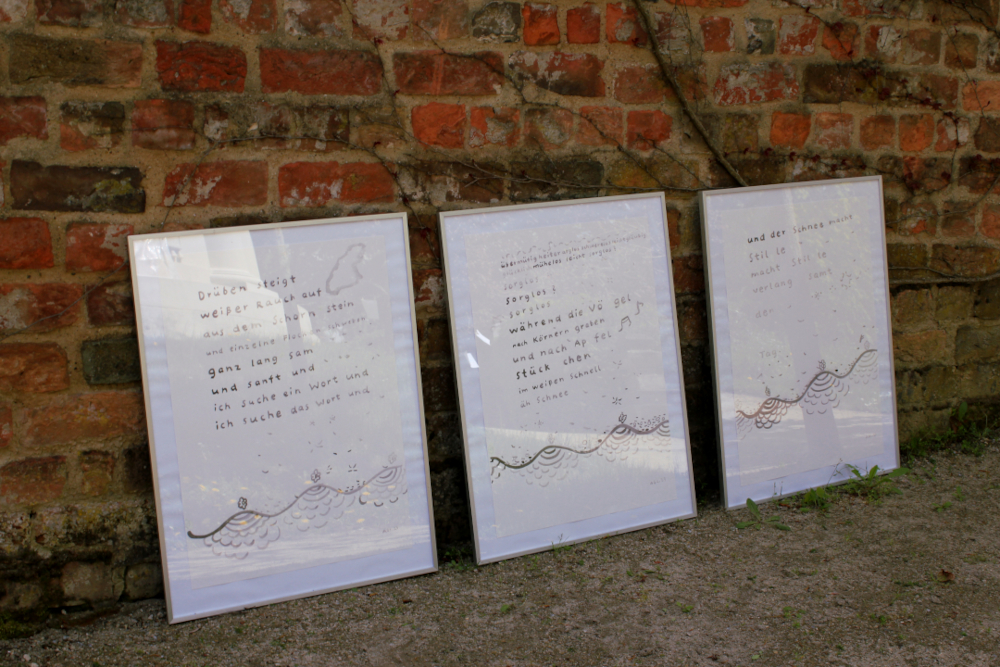 Drüben steigt
weißer Rauch auf
aus dem Schorn stein
und einzelne
ganz lang sam
und sanft und
ich suche ein Wort und
ich suche das Wort und
übermütig
mühelos
sorglos
sorglos !
sorglos
während die Vö gel
nach Körnern graben
und nach Ap fel
stück chen
im weißen Schnell
äh Schnee
und der Schnee macht
Stil le
macht Stil le
verlang samt
der
Tag